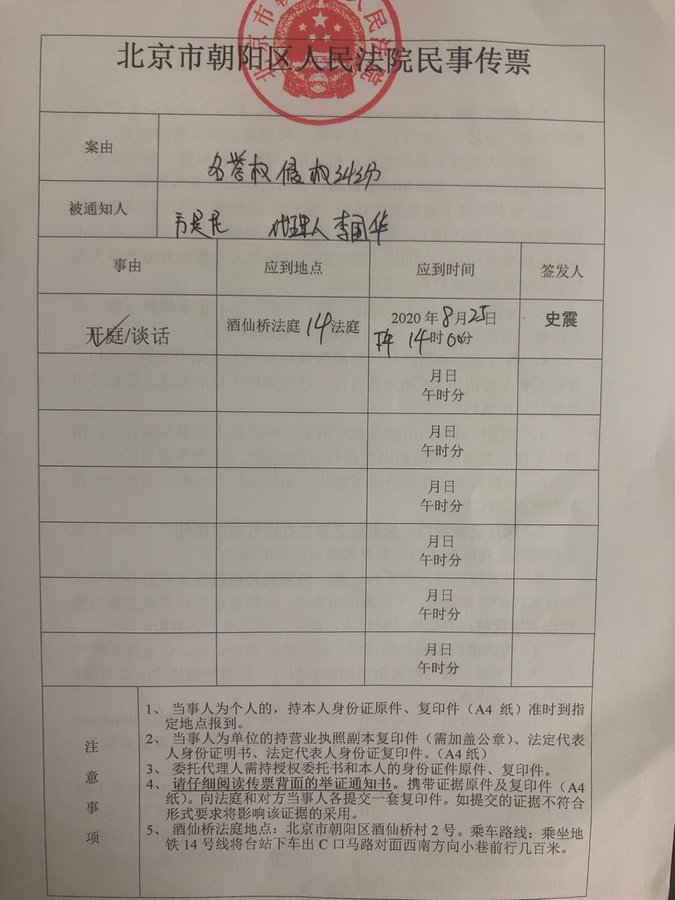 北京市朝阳区人民法院
北京市朝阳区人民法院民事传票
案由
名誉权侵权纠纷
被通知人
代理人 李国华
事由
应到地点
应到时间
签发人
开庭/谈话
酒仙桥法庭 14 法庭
2020 年 8 月 25 日
下午 14 时 00 分
史震
月日
午时分
月日
午时分
月日
午时分
月日
午时分
月日
午时分
月日
午时分
注意事项
1、 当事人为个人的，持本人身份证原件、复印件（A4 纸）准时到指
定地点报到。
2、 当事人为单位的持营业执照副本复印件（需加盖公章）、法定代表
人身份证明书、法定代表人身份证复印件。（A4 纸）
3、 委托代理人需持授权委托书和本人的身份证件原件、复印件。
4、 请仔细阅读传票背面的举证通知书。携带证据原件及复印件（A4
纸）。向法庭和对方当事人各提交一套复印件。如提交的证据不符合
形式要求将影响该证据的采用。
5、 酒仙桥法庭地点：北京市朝阳区酒仙桥村 2 号。乘车路线：乘坐地
铁 14 号线将台站下车出 C 口马路对面西南方向小巷前行几百米。